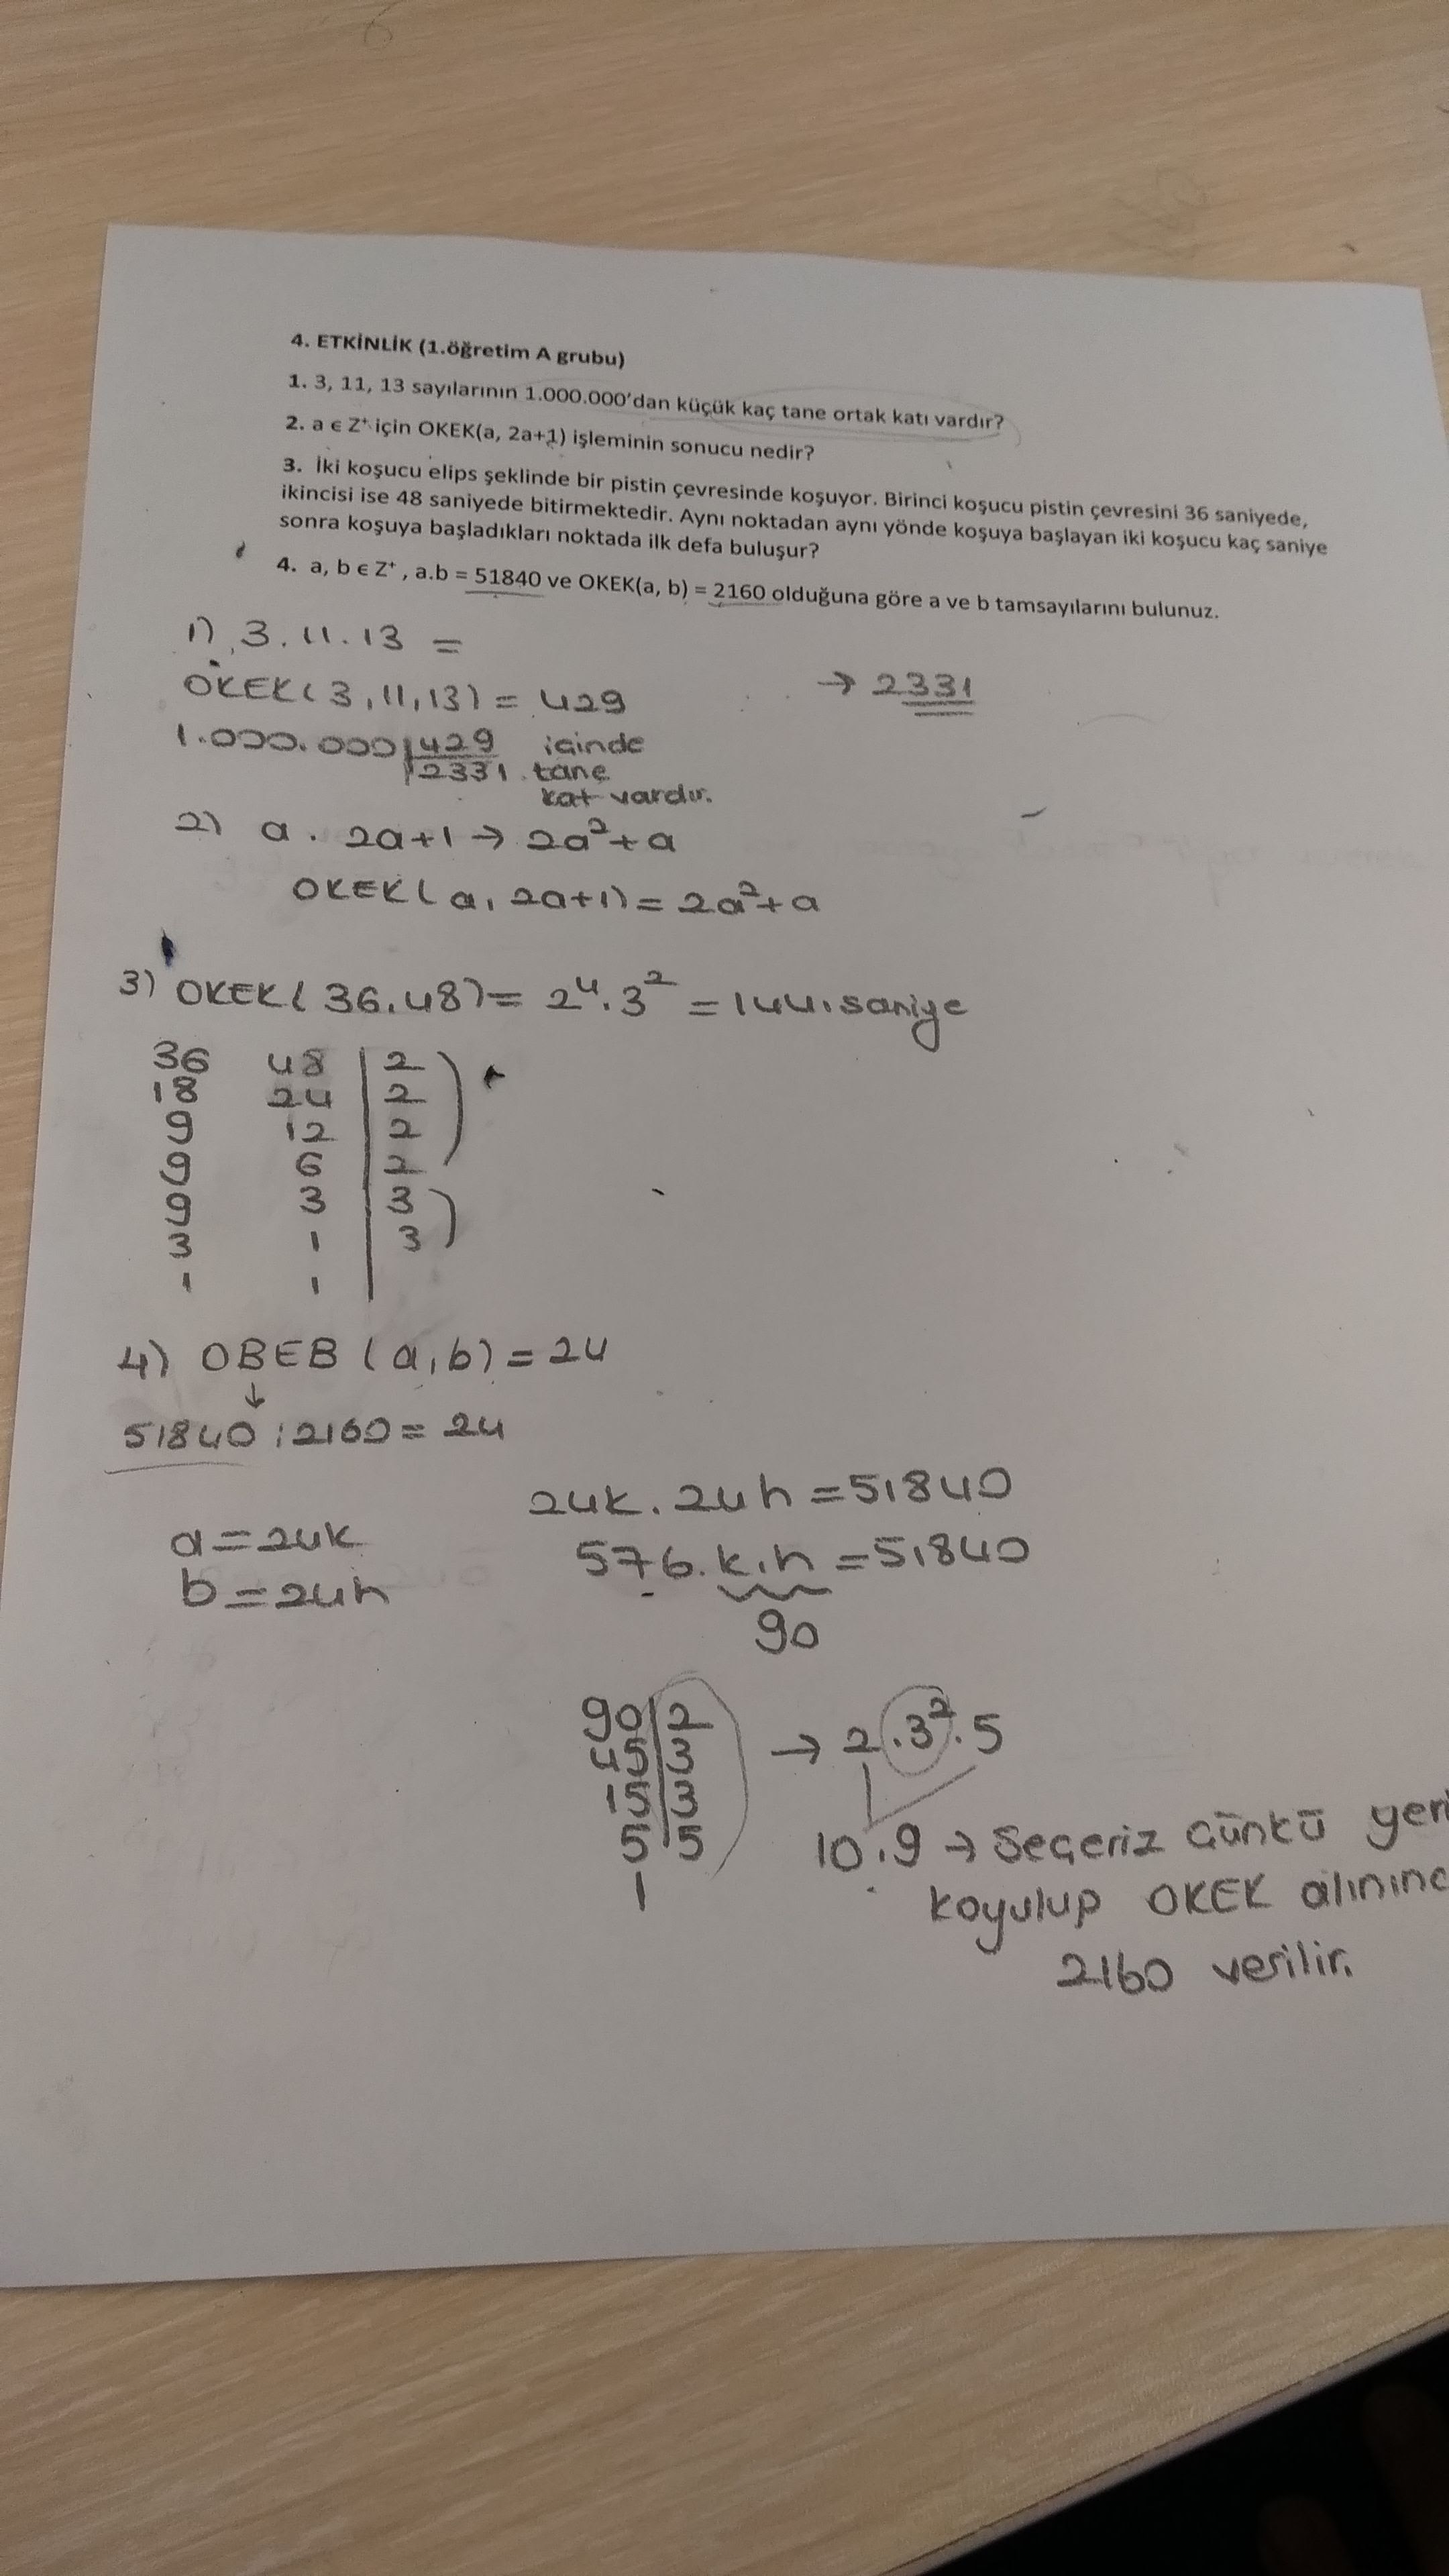 4. ETKİNLİK (1.öğretim A grubu)
1. 3, 11, 13 sayılarının 1.000.000'dan küçük kaç tane ortak katı vardır?
2. a ϵ Z⁺ için OKEK(a, 2a+1) işleminin sonucu nedir?
3. İki koşucu elips şeklinde bir pistin çevresinde koşuyor. Birinci koşucu pistin çevresini 36 saniyede,
ikincisi ise 48 saniyede bitirmektedir. Aynı noktadan aynı yönde koşuya başlayan iki koşucu kaç saniye
sonra koşuya başladıkları noktada ilk defa buluşur?
4. a, b ϵ Z⁺ , a.b = 51840 ve OKEK(a, b) = 2160 olduğuna göre a ve b tamsayılarını bulunuz.
1) 3.11.13 =
OKEK(3,11,13) = 429 → 2331
1.000.000 | 429 içinde
2331 tane
kat vardır.
2) a . 2a+1 → 2a²+a
OKEK(a, 2a+1) = 2a²+a
3) OKEK(36.48) = 2⁴.3² = 144.saniye
36 48 | 2
18 24 | 2
9 12 | 2
9 6 | 2
9 3 | 3
3 1 | 3
1 1 |
4) OBEB (a,b) = 24
↓
51840 : 2160 = 24
24k . 24h = 51840
a = 24k
576. k.h = 51840
b = 24h
90
90 | 2 → 2.3².5
45 | 3
15 | 3
5 | 5
10.9 → Seçeriz Çünkü
1
koyulup OKEK
2160 verilir.